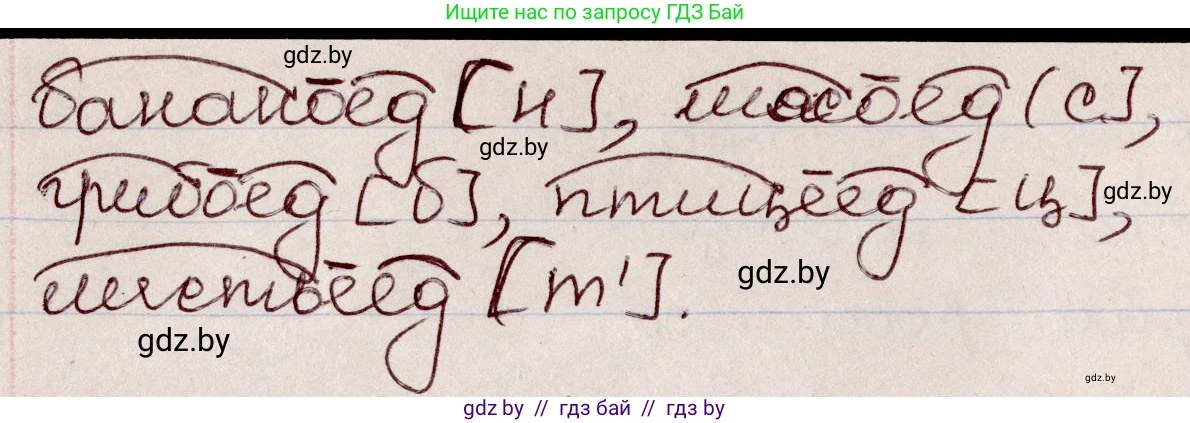 Ищите нас по запросу ГДЗ Бай
gdz.by
бананоед [н], мясоед (с],
gdz.by
грибоед [б], птицеед [ц],
gdz.by
листьеед [т'].
gdz.by
gdz.by
gdz.by
gdz by // гдз бай // гдз by